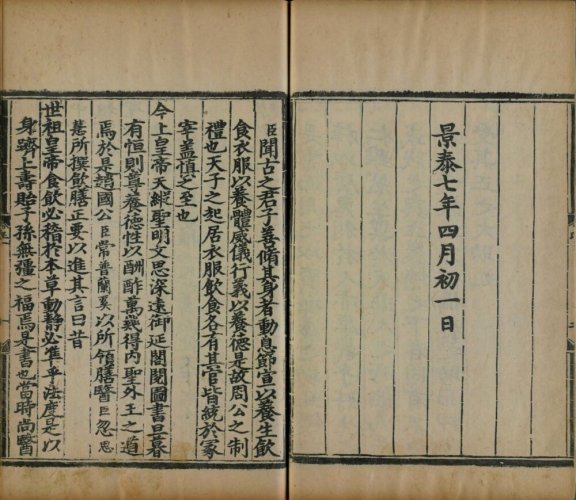 景泰七年四月初一日
臣聞古之君子善脩其身者動息節宣以養生飲
食衣服以養體威儀行義以養德是故周公之制
禮也天子之起居衣服飲食各有其官皆統於冢
宰蓋慎之至也
今上皇帝天縱聖明文思深遠御延閣閱圖書旦暮
有恒則尊養德性以酬酢萬幾得內聖外王之道
焉於是趙國公臣常普蘭奚以所領膳醫臣忽思
慧所撰飲膳正要以進其言曰昔
世祖皇帝食飲必稽於本草動靜必準乎法度是以
身躋上壽貽子孫無疆之福焉是書也當時尚醫